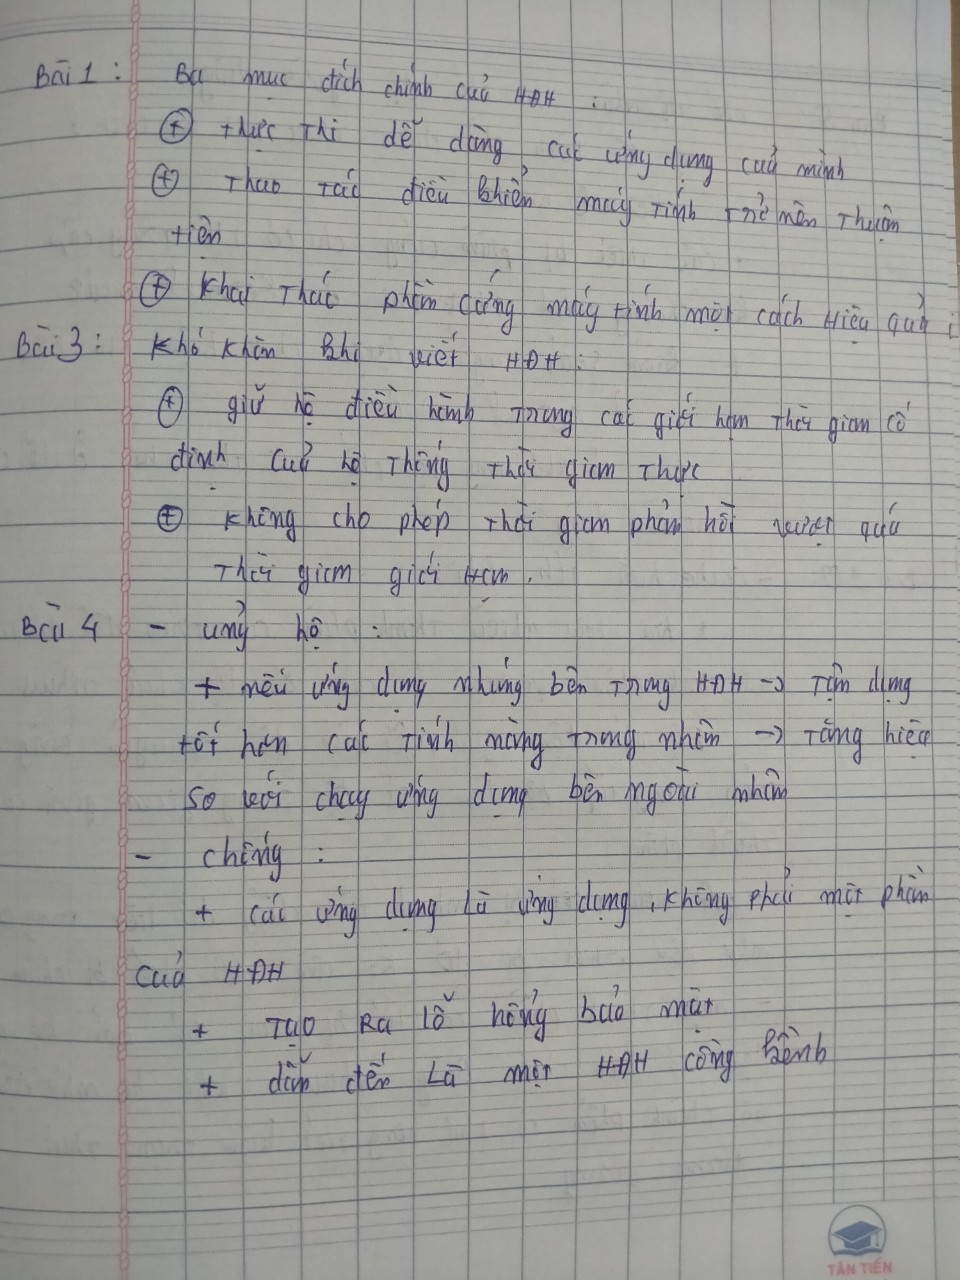 Bài 1: Ba mục đích chính của HĐH:
+ thực thi dễ dàng các ứng dụng của mình
+ Thao tác điều khiển máy tính trở nên thuận
tiện
+ khai thác phần cứng máy tính một cách hiệu quả
Bài 3: Khó khăn khi viết HĐH:
+ giữ hệ điều hành trong các giới hạn thời gian cố
định của hệ thống thời gian thực
+ không cho phép thời gian phản hồi vượt quá
thời gian giới hạn.
Bài 4 - ủng hộ:
+ nếu ứng dụng nhúng bên trong HĐH -> tận dụng
tốt hơn các tính năng trong nhân -> tăng hiệu
so với chạy ứng dụng bên ngoài nhân
- chống:
+ các ứng dụng là ứng dụng, không phải một phần
của HĐH
+ Tạo ra lỗ hổng bảo mật
+ dẫn đến là một HĐH cồng kềnh
TÂN TIẾN